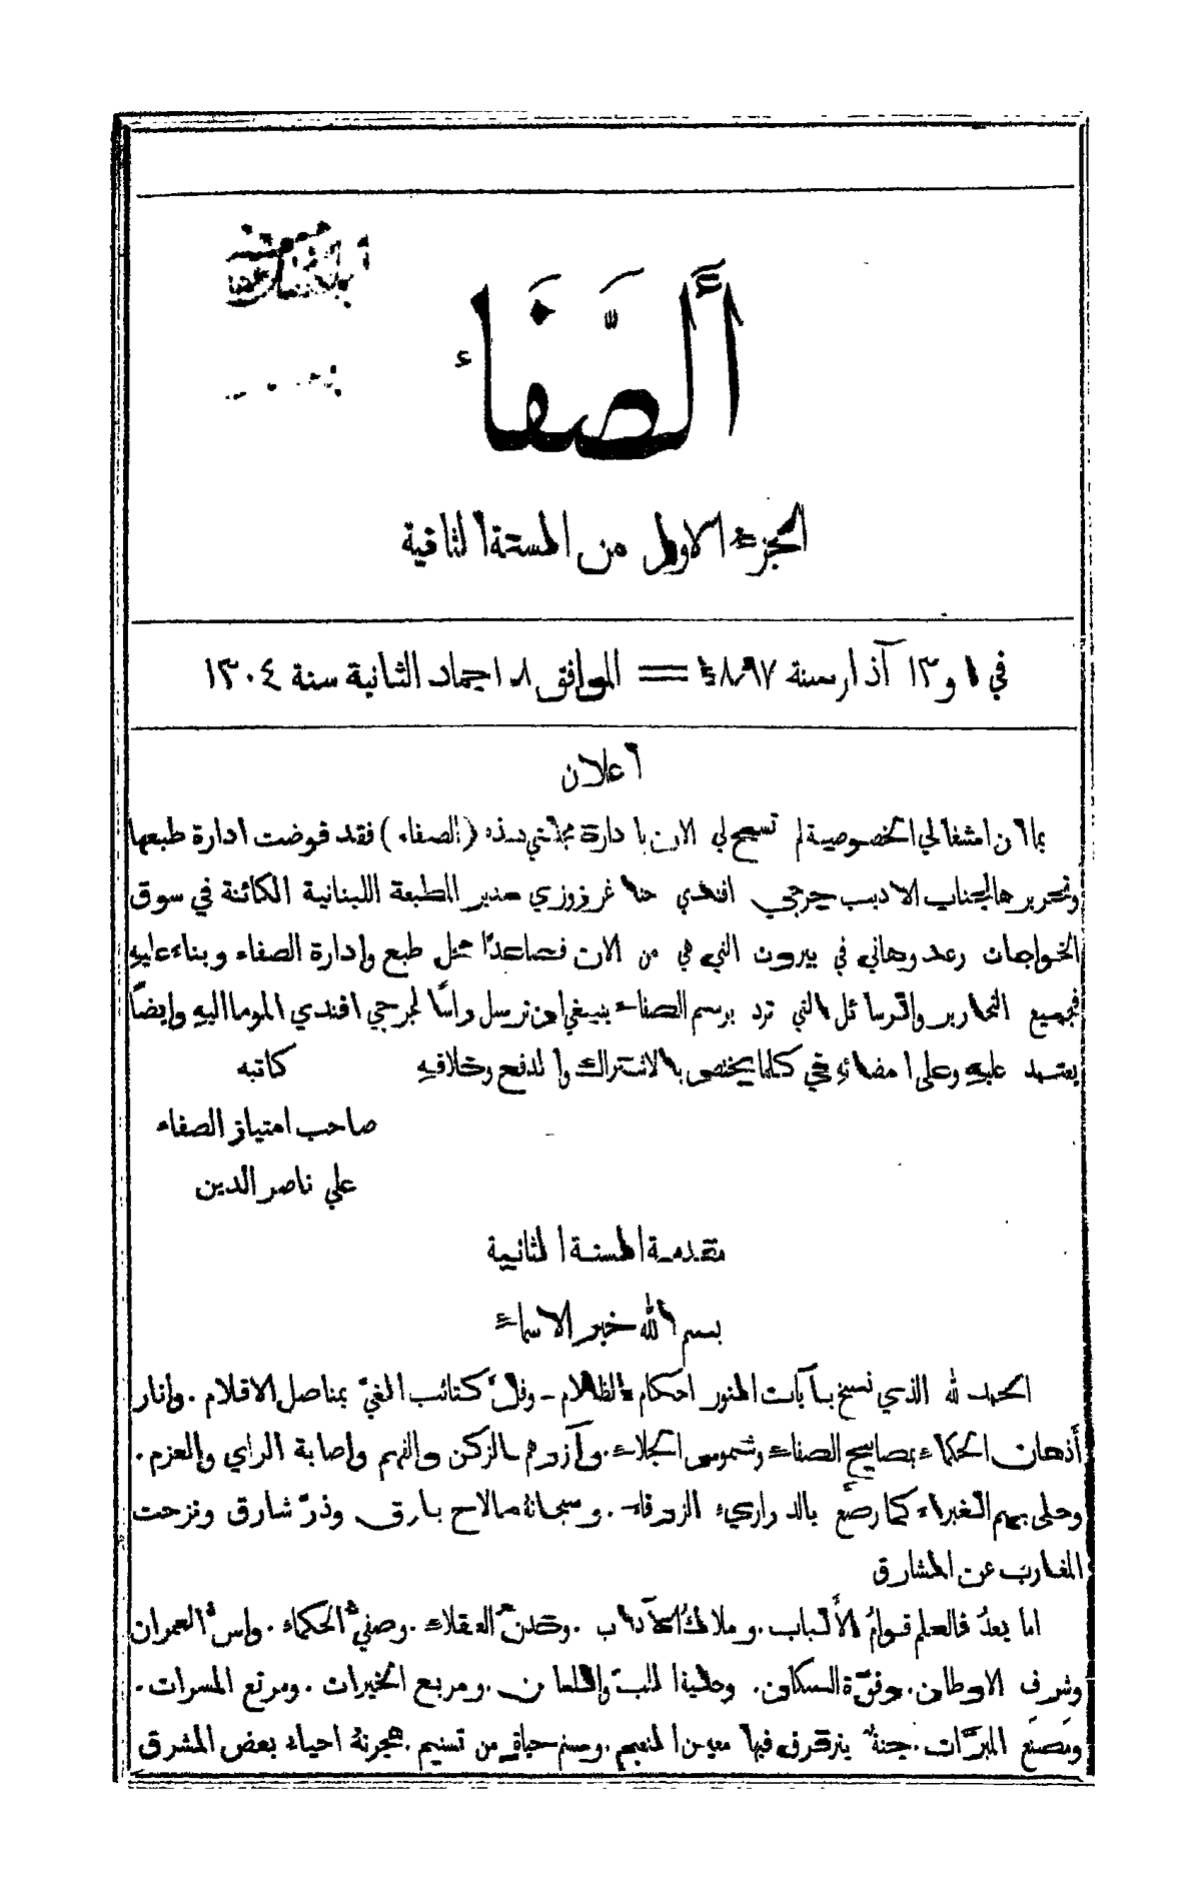 أَلصَّفَاء
الجزء الاول من السنة الثانية
في ١ و١٣ آذار سنة ١٨٨٧ = الموافق ١٨ جماد الثانية سنة ١٣٠٤
اعلان
بما ان اشغالي الخصوصية لم تسمح لي الان بادارة مجلتي هذه (الصفاء) فقد فوضت ادارة طبعها
وتحريرها لجناب الاديب جرجي افندي حنا غرزوزي مدير المطبعة اللبنانية الكائنة في سوق
الخواجات رعد وهاني في بيروت التي هي من الان فصاعدًا محل طبع وإدارة الصفاء وبناء عليهِ
فجميع التحارير والرسائل التي ترد برسم الصفاء ينبغي ان ترسل راسًا لجرجي افندي الموما اليهِ وايضًا
يعتمد عليهِ وعلى امضائهِ في كلما يختص بالاشتراك والدفع وخلافهِ كاتبه
صاحب امتياز الصفاء
علي ناصر الدين
مقدمة السنة الثانية
بسم الله خير الاسماء
الحمد لله الذي نسخ بآيات النور احكام الظلام - وفلَّ كتائب الغيّ بمناصل الاقلام . وانار
أذهان الحكماء بمصابيح الصفاء وشموس الجلاء . وآزرهم بالزكن والفهم واصابة الراي والعزم .
وحلى بهم الغبراء كما رصَّع بالدراريء الزرقاء . وسبحانهُ ما لاح بارق وذرّ شارق ونزحت
المغارب عن المشارق
اما بعدُ فالعلم قوامُ الألباب . وملاك الآداب . وخدن العقلاء . وصفيّ الحكماء . واس العمران
وشرف الاوطان . وقرّة السكان . وحلية اللبّ واللسان . ومربع الخيرات . ومرتع المسرات .
ومَصنَع المبرَّات . جنةٌ يترقرق فيها معين النعيم . ونسيم حياةٍ من تسنيم . تجرية احياء بعض المشرق